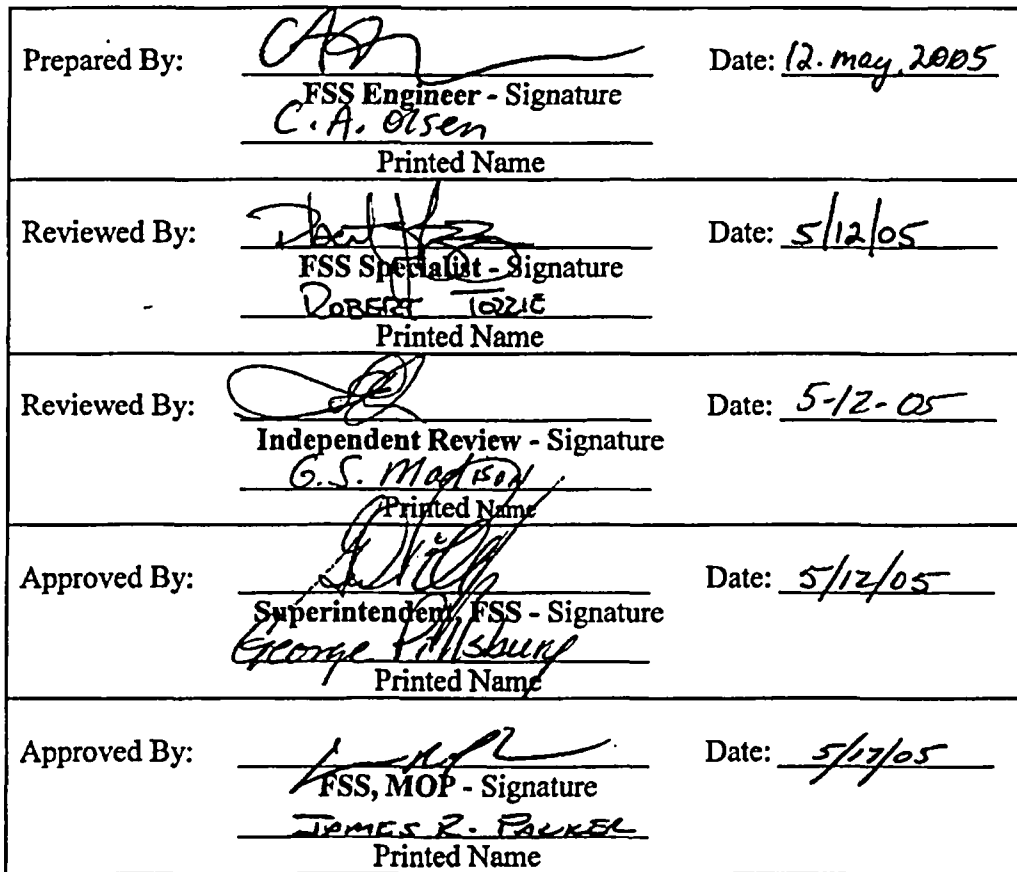 Prepared By: Date: 12. may. 2005
FSS Engineer - Signature
C.A. Olsen
Printed Name
Reviewed By: Date: 5/12/05
FSS Specialist - Signature
ROBERT TOZZIE
Printed Name
Reviewed By: Date: 5-12-05
Independent Review - Signature
G.S. Madison
Printed Name
Approved By: Date: 5/12/05
Superintendent, FSS - Signature
George Pillsbury
Printed Name
Approved By: Date: 5/17/05
FSS, MOP - Signature
JAMES R. PAUKER
Printed Name